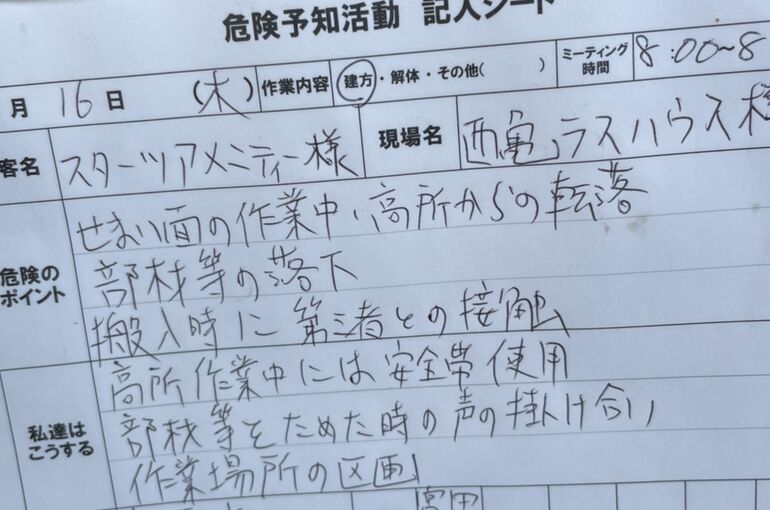 危険予知活動 記入シート
月 16日 (木) 作業内容 建方・解体・その他( ) ミーティング時間 8:00~8
客名 スターツアメニティー様 現場名 西亀ラスハウス様
危険のポイント せまい面の作業中、高所からの転落
部材等の落下
搬入時に第三者との接触
私達はこうする 高所作業中には安全帯使用
部材等をためた時の声の掛け合い
作業場所の区画